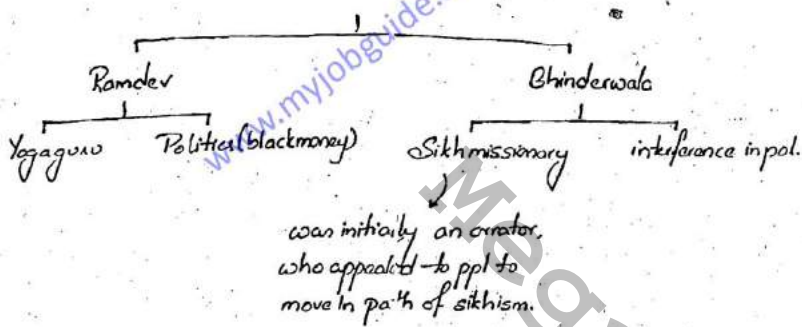 www.myjobguide.
Ramdev Bhinderwala
Yogaguru Politics (blackmoney) Sikhmissionary interference in pol.
was initially an orrator,
who appealed to ppl to
move in path of sikhism.